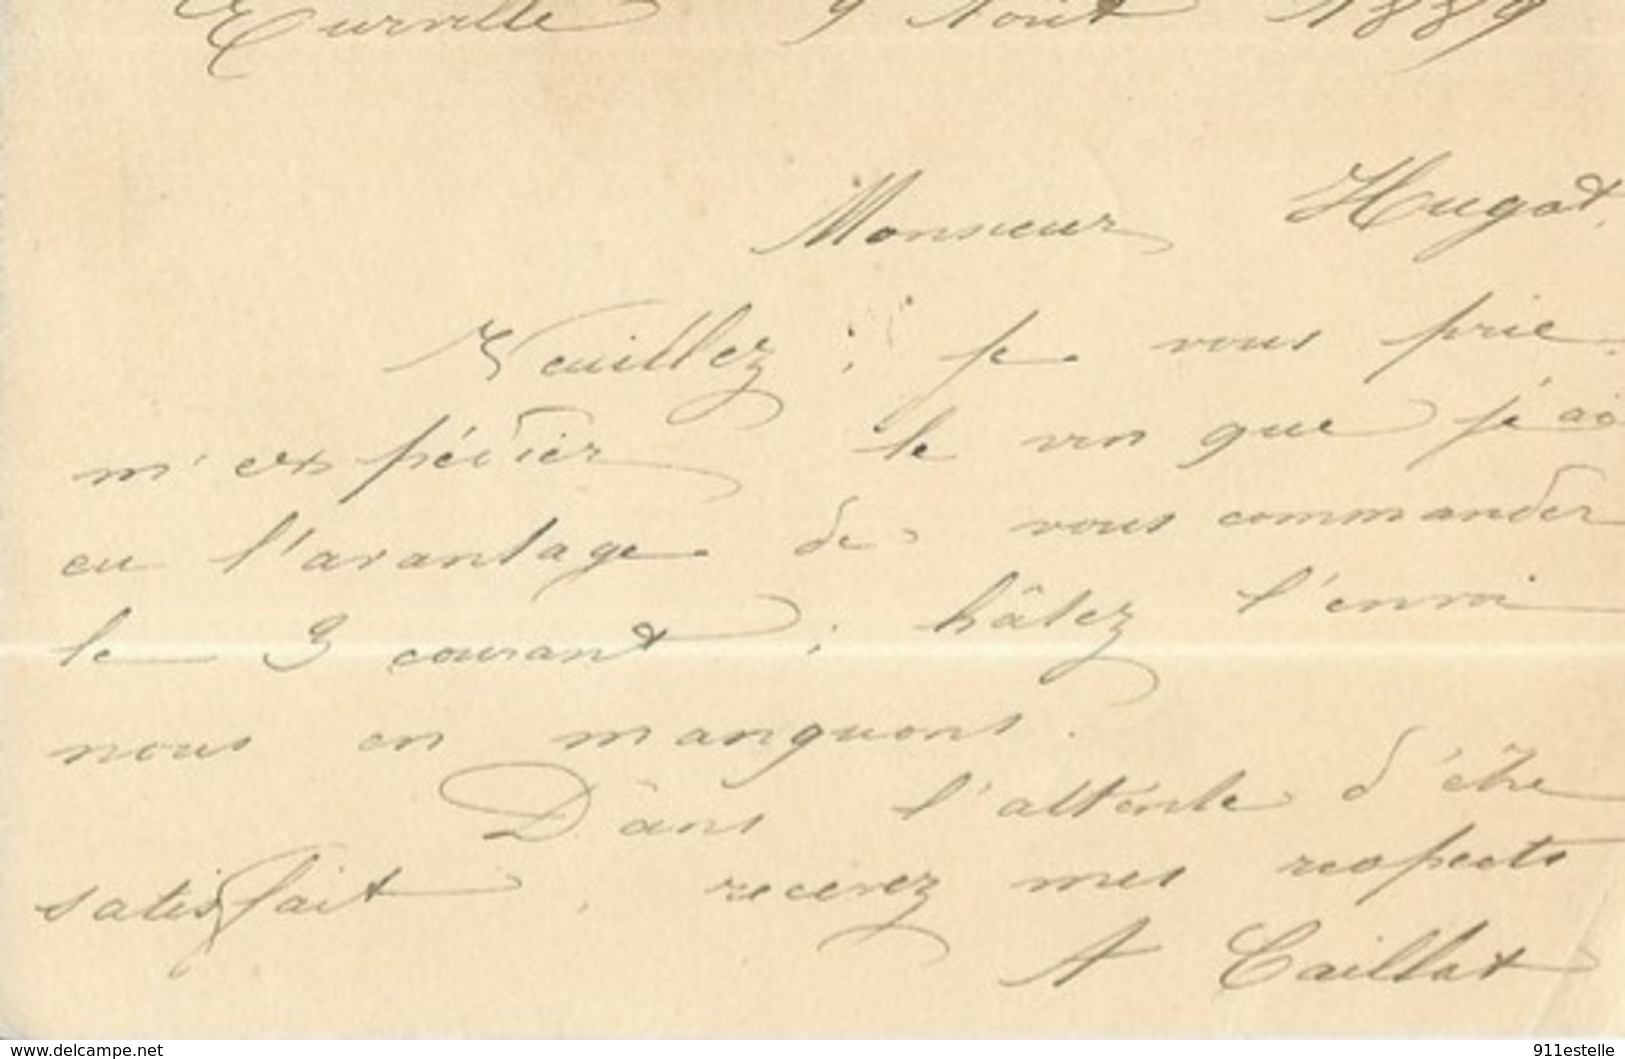 Eurville 9 Août 1889
Monsieur Hugot.
Veuillez ; je vous prie
m'expédier le vin que j'ai
eu l'avantage de vous commander
le 3 courant ; hâtez l'envoi
nous en manquons.
Dans l'attente d'être
satisfait, recevez mes respects
A Caillat
www.delcampe.net 911estelle